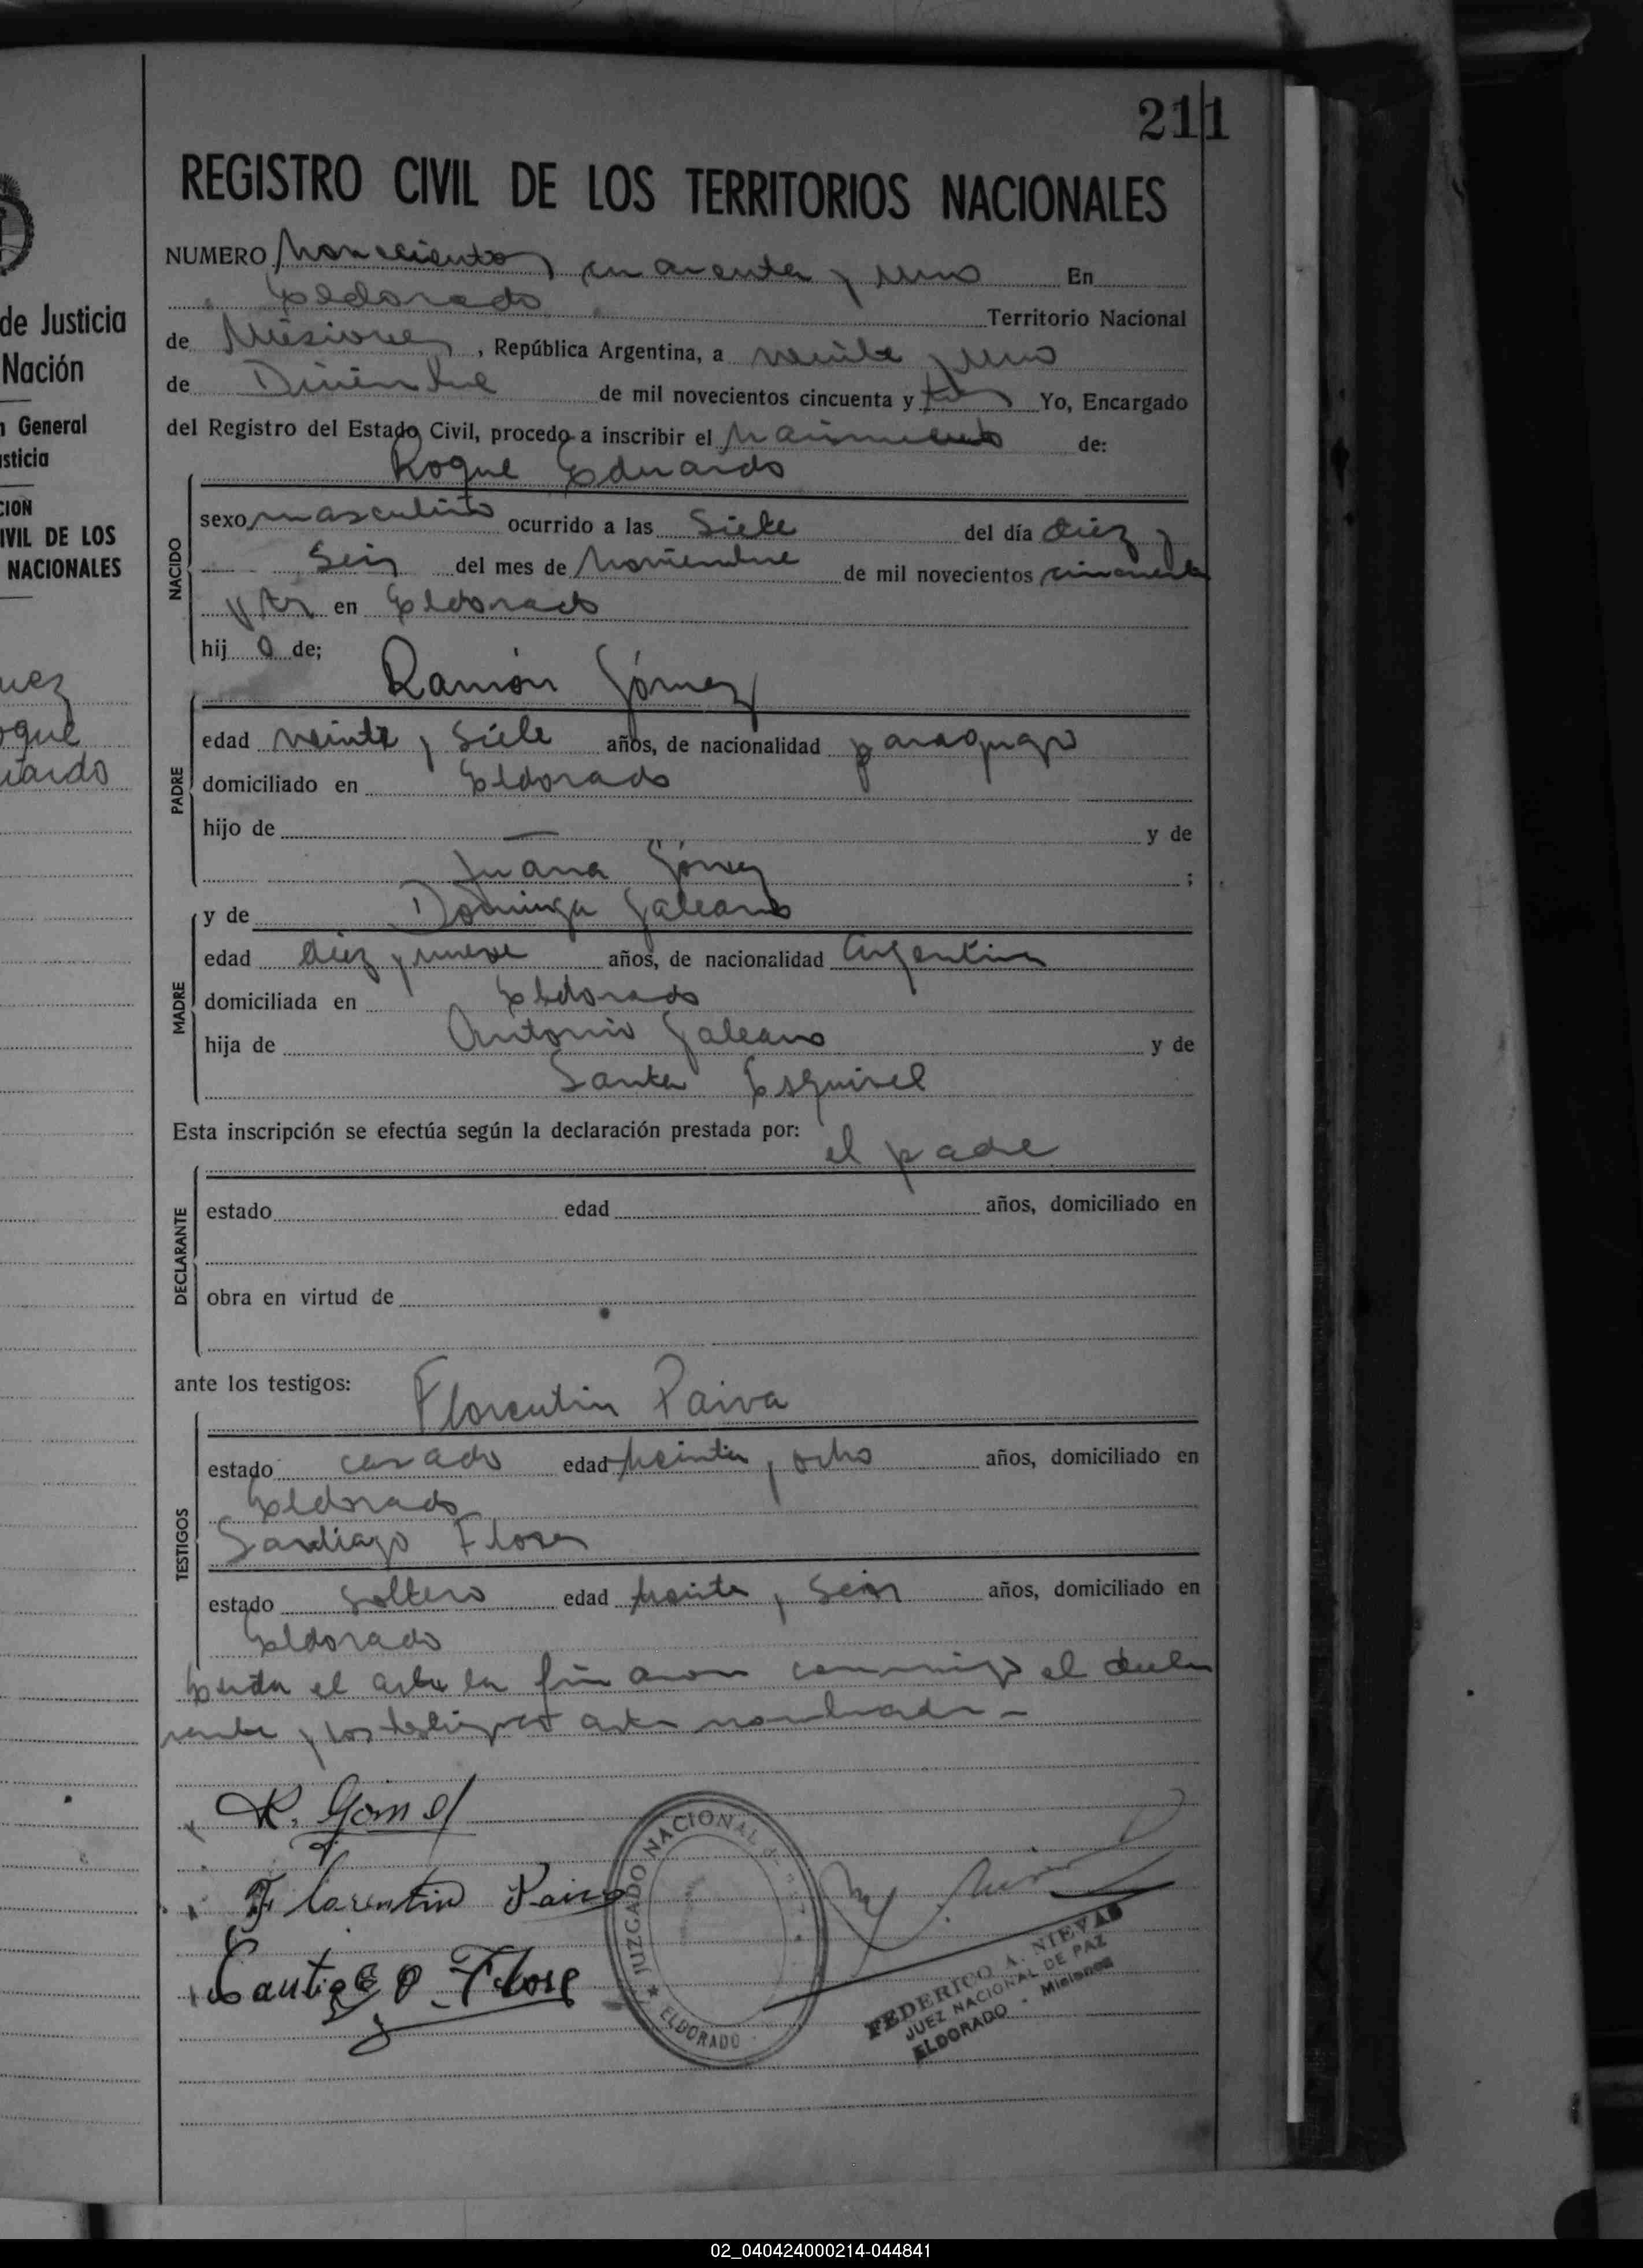 211
REGISTRO CIVIL DE LOS TERRITORIOS NACIONALES
NUMERO novecientos cuarenta y uno En
Eldorado Territorio Nacional
de Misiones, República Argentina, a veinte y uno
de Diciembre de mil novecientos cincuenta y tres Yo, Encargado
del Registro del Estado Civil, procedo a inscribir el nacimiento de:
Roque Eduardo
NACIDO
sexo masculino ocurrido a las Siete del día diez y
Seis del mes de Noviembre de mil novecientos cincuenta
y tres en Eldorado
hij o de;
Ramón Gómez
PADRE
edad veinte y Siete años, de nacionalidad paraguayo
domiciliado en Eldorado
hijo de — y de
Juana Gómez ;
MADRE
y de Dominga Galeano
edad diez y nueve años, de nacionalidad Argentina
domiciliada en Eldorado
hija de Antonio Galeano y de
Santa Esquivel
Esta inscripción se efectúa según la declaración prestada por:
el padre
DECLARANTE
estado edad años, domiciliado en
obra en virtud de
ante los testigos:
Florentin Paiva
TESTIGOS
estado casado edad treinta y ocho años, domiciliado en
Eldorado
Santiago Flores
estado Soltero edad treinta y Seis años, domiciliado en
Eldorado
Leida el acta la firmaron conmigo el decla
rante y los testigos antes nombrados -
R. Gomez
Florentin Paiva
Santiago Flore
JUZGADO NACIONAL DE PAZ
ELDORADO
FEDERICO A. NIEVAS
JUEZ NACIONAL DE PAZ
ELDORADO - Misiones
de Justicia
Nación
General
sticia
CION
IVIL DE LOS
NACIONALES
mez
oque
uardo
02_040424000214-044841